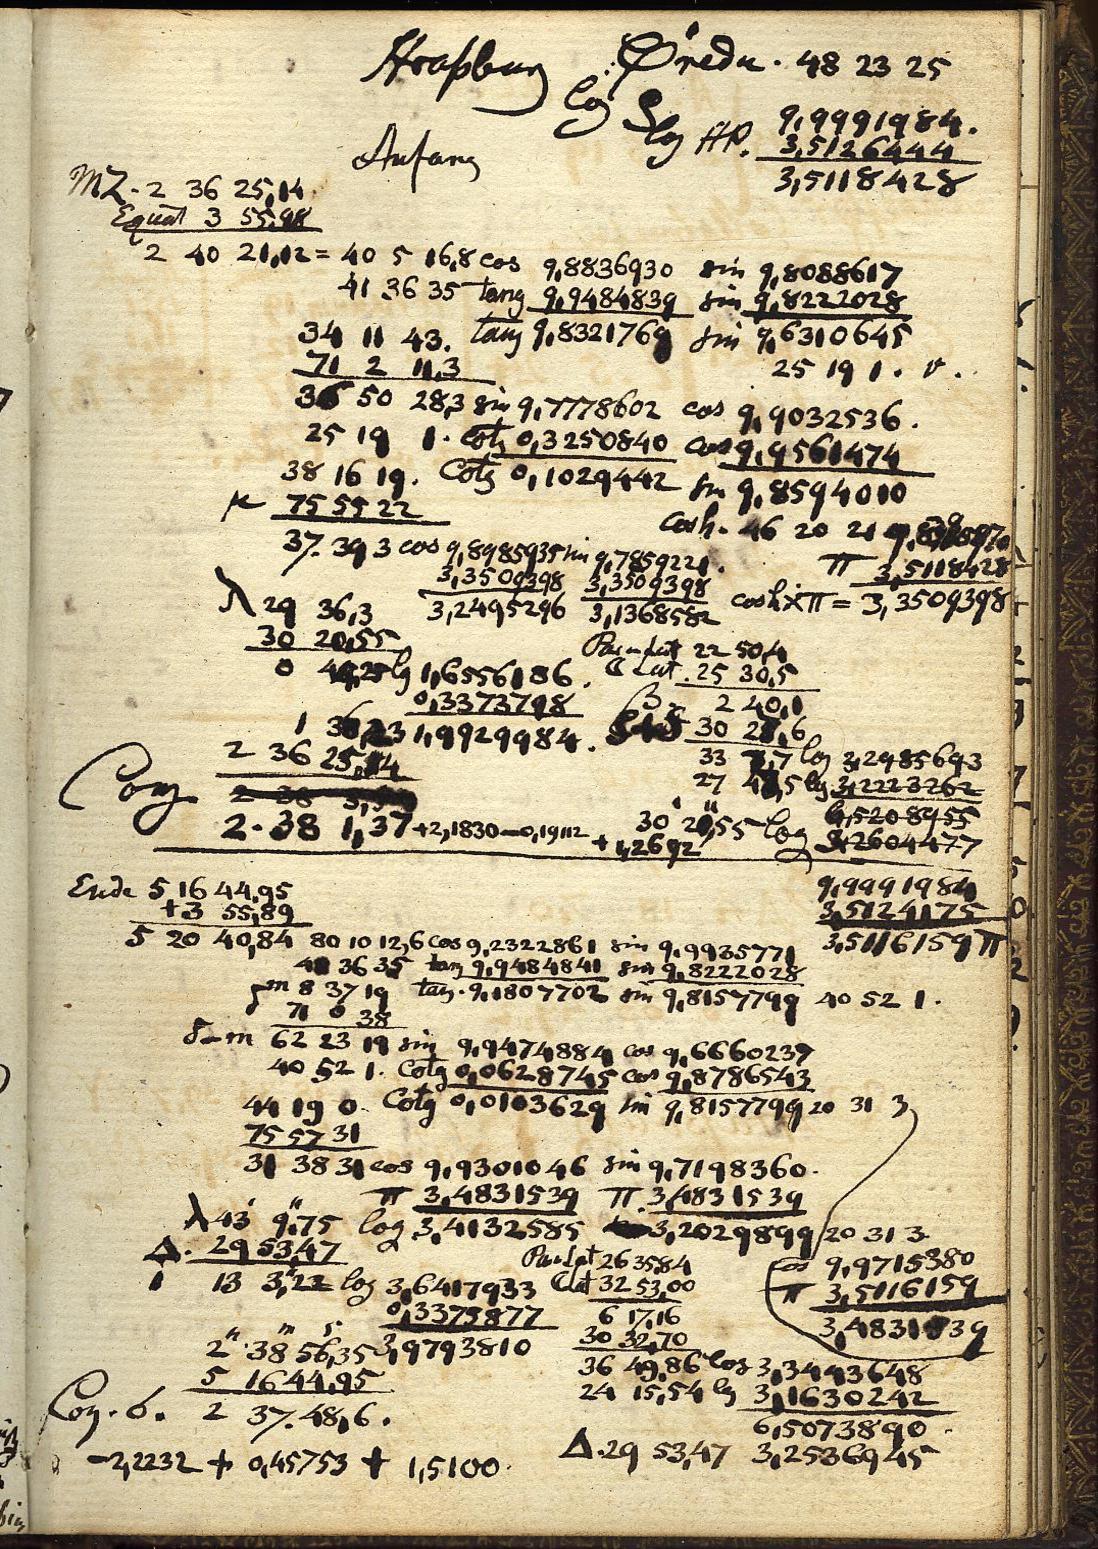 Straßburg φ redu. 48 23 25
log S 9,9991984.
log HP. 3,5126444
Anfang 3,5118428
MZ. 2 36 25,14
Equat 3 55,98
2 40 21,12 = 40 5 16,8 cos 9,8836930 sin 9,8088617
41 36 35 tang 9,9484839 sin 9,8222028
34 11 43. tang 9,8321769 sin 9,6310645
71 2 11,3 25 19 1. v.
36 50 28,3 sin 9,7778602 cos 9,9032536.
25 19 1. Cotg 0,3250840 cos 9,9561474
38 16 19. Cotg 0,1029442 sin 9,8594010
75 55 22 cosh. 46 20 21
37. 39 3 cos 9,8985935 sin 9,7859221. π 3,5118428
3,3509398 3,3509398 cosh × π = 3,3509398
λ 29 36,3 3,2495296 3,1368582
30 20,55 Par. Lat 22 50,4
0 44,25 lg 1,6556186. ☾ Lat. 25 30,5
0,3373798 β. 2 40,1
1 38,23 1,9929984. 30 28,6
2 36 25,14 33 8,7 log 3,2985693
27 48,5 lg 3,2223262
Conj 6,5208955
2. 38 1,37 + 2,1830 – 0,1912 30' 20",55 log 3,2604477
+ 1,2692
Ende 5 16 44,95 9,9991984
+3 55,89 3,5124175
5 20 40,84 80 10 12,6 cos 9,2322861 sin 9,9935771 3,5116159 π
41 36 35 tang 9,9484841 sin 9,8222028
m 8 37 19 tang. 9,1807702 sin 9,8157799 40 52 1.
71 0 38
δ–m 62 23 19 sin 9,9474884 cos 9,6660239
40 52 1. Cotg 0,0628745 cos 9,8786543
44 19 0. Cotg 0,0103629 sin 9,8157799 20 31 3
75 57 31
31 38 31 cos 9,9301046 sin 9,7198360.
π 3,4831539 π. 3,4831539
λ 43' 9",75 log 3,4132585 3,2029899 20 31 3
Δ. 29 53,47 Par Lat 26 35 84 cos 9,9715380
1 13 3",22 log 3,6417933 ☾ Lat 32 53,00 π 3,5116159
0,3375877 6 17,16 3,4831539
2 38 56,35 3,9793810 30 32,70
5 16 44,95 36 49,86 log 3,3443648
Conj. 6. 2 37. 48,6. 24 15,54 lg 3,1630242
6,5073890
–2,2232 + 0,45753 + 1,5100 Δ. 29 53,47 3,2536945